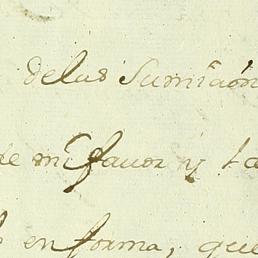 delas Sumición
de mi favor y la
en forma, que